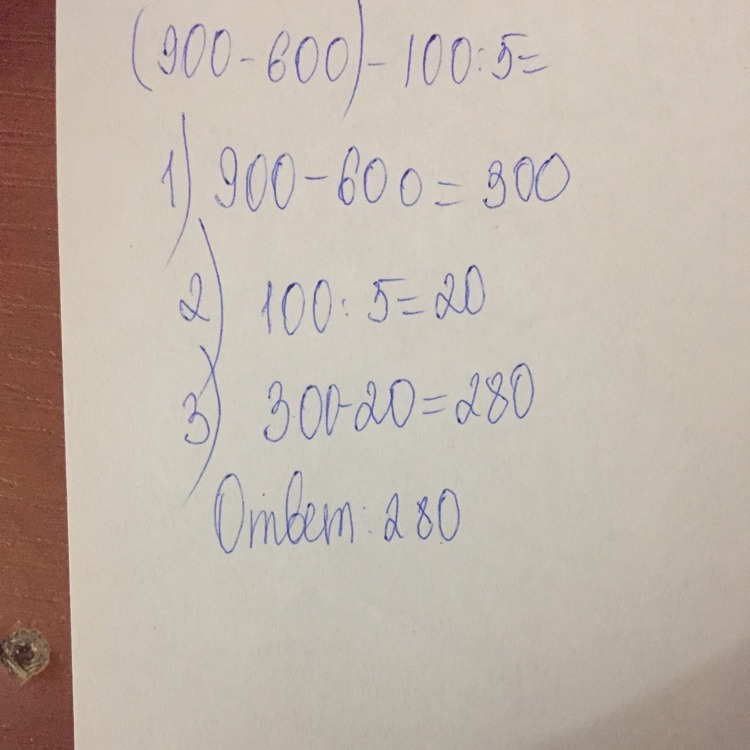 (900-600)-100:5=
1) 900-600=300
2) 100:5=20
3) 300-20=280
Ответ: 280